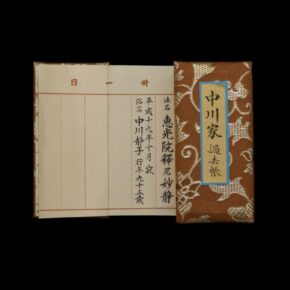 中川家
過去帳
卅一日
法名 惠光院釋尼妙静
平成十九年十月寂
俗名 中川静子 行年九十五歳